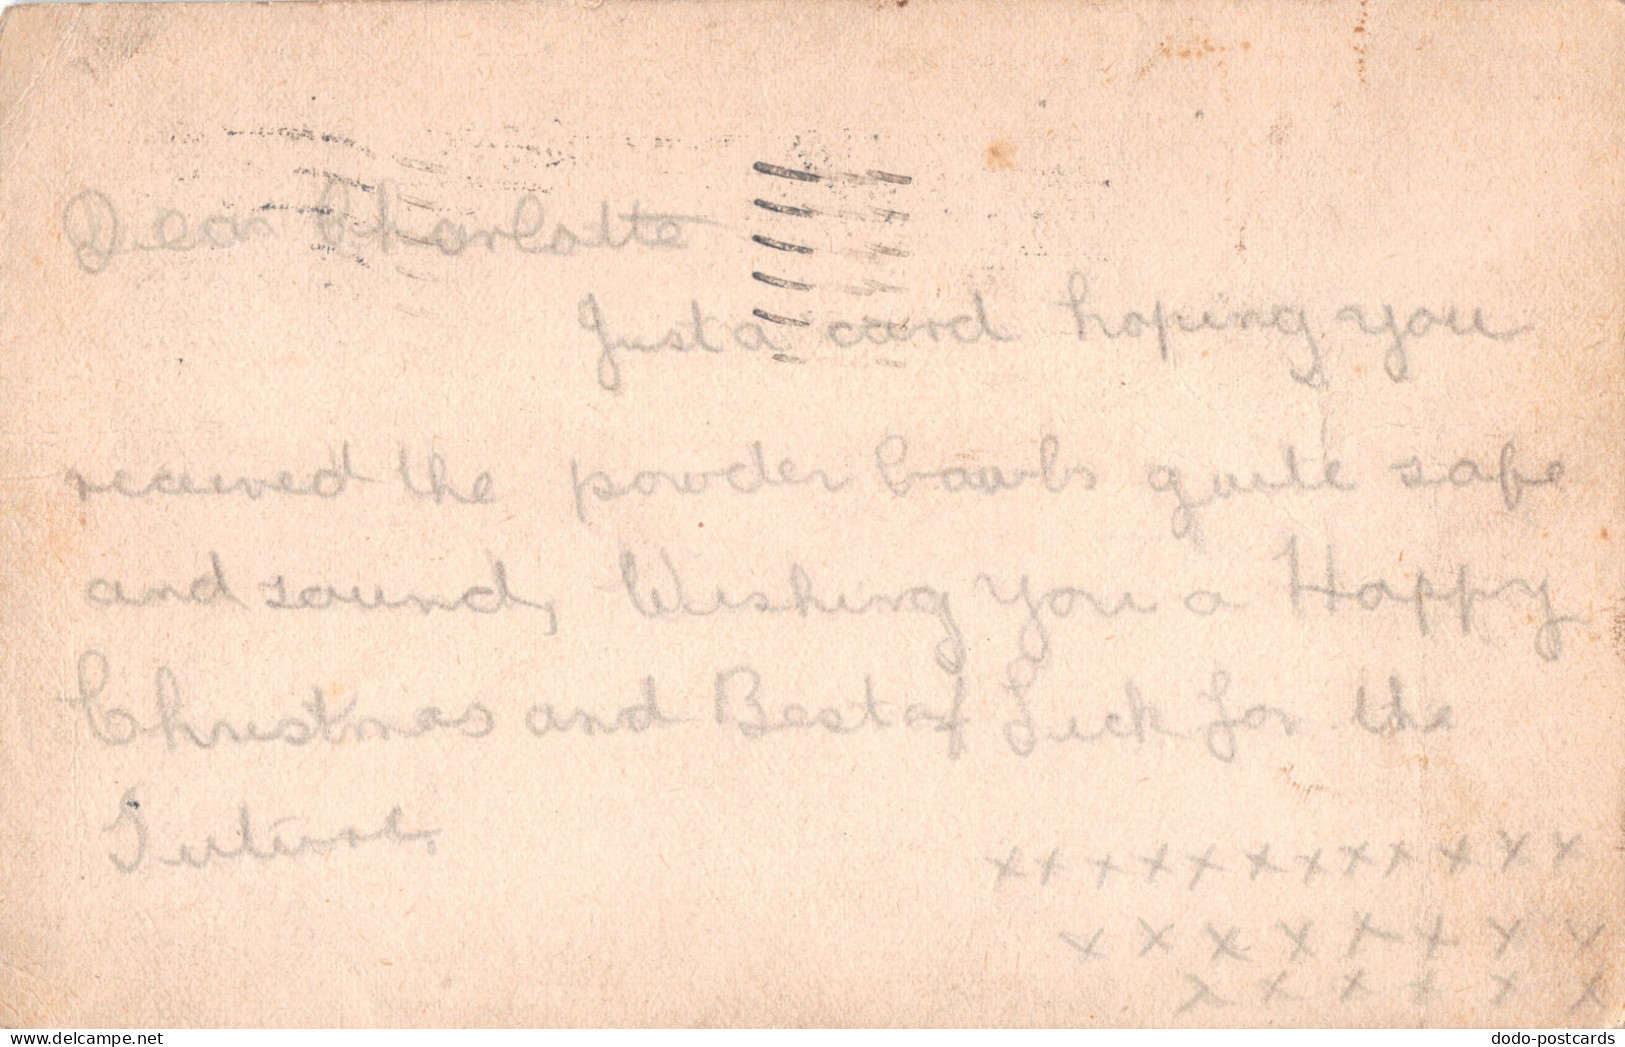 Dear Charlotte
Just a card hoping you
received the powder bawls quite safe
and sound, Wishing you a Happy
Christmas and Best of Luck for the
Future,
xxxxxxxxxxxx
xxxxxxxx
xxxxxx
dodo-postcards